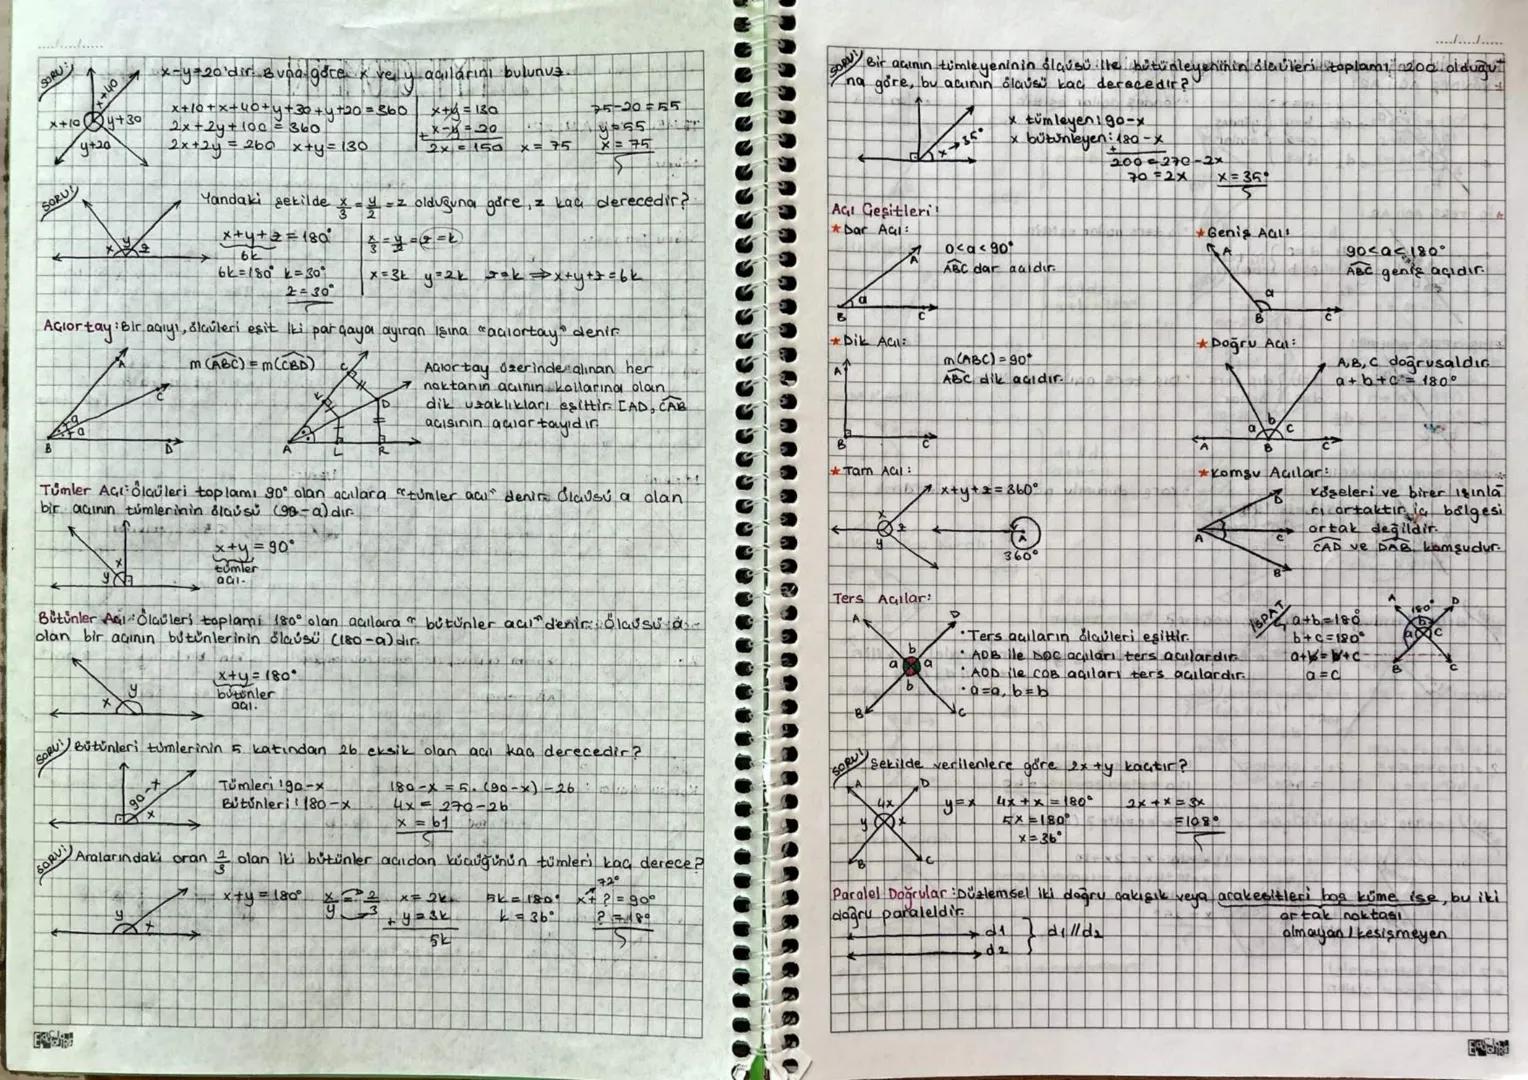 SORU:
x-y=20'dir. Buna göre x ve y açılarını bulunuz.
x+40
x+10
y+30
y+20
x+10+x+40+y+30+y+20=360
2x+2y+100=360
2x+2y=260 x+y=130
x+y=130
+ x-y=20
2x=150 x=75
75-20=55
y=55
x=75
SORU:
Yandaki şekilde x/3=y/2=z olduğuna göre, z kaç derecedir?
x y z
x+y+z=180°
6k
6k=180° k=30°
z=30°
x/3=y/2=z=k
x=3k y=2k z=k ⇒x+y+z=6k
Açıortay: Bir açıyı, ölçüleri eşit iki parçaya ayıran ışına "açıortay" denir.
A
C
a
a
B
D
m(ABC)=m(CBD)
C
K
D
A
L
R
Açıortay üzerinde alınan her
noktanın açının kollarına olan
dik uzaklıkları eşittir. [AD, CAB
açısının açıortayıdır.
Tümler Açı: Ölçüleri toplamı 90° olan açılara "tümler açı" denir. Ölçüsü a olan
bir açının tümlerinin ölçüsü (90-a)dır.
x
y
x+y=90°
tümler
açı.
Bütünler Açı: Ölçüleri toplamı 180° olan açılara "bütünler açı" denir. Ölçüsü a
olan bir açının bütünlerinin ölçüsü (180-a)dır.
x
y
x+y=180°
bütünler
açı.
SORU:
Bütünleri tümlerinin 5 katından 26 eksik olan açı kaç derecedir?
90-x
x
Tümleri: 90-x
Bütünleri: 180-x
180-x=5.(90-x)-26
4x=270-26
x=61
SORU:
Aralarındaki oran 2/3 olan iki bütünler açıdan küçüğünün tümleri kaç derece?
y
x
x+y=180°
x/y=2/3
x=2k
+ y=3k
5k
5k=180°
k=36°
72°
x+?=90°
?=18°
SORU:
Bir açının tümleyeninin ölçüsü ile bütünleyeninin ölçüleri toplamı 200 olduğu-
na göre, bu açının ölçüsü kaç derecedir?
x→35°
x tümleyen: 90-x
x bütünleyen: 180-x
+
200=270-2x
70=2x x=35°
Açı Çeşitleri:
*Dar Açı:
A
a
B
C
0<a<90°
ABC dar açıdır.
*Geniş Açı:
A
a
B
C
90<a<180°
ABC geniş açıdır.
*Dik Açı:
A
B
C
m(ABC)=90°
ABC dik açıdır.
*Doğru Açı:
a b c
A
B
C
A,B,C doğrusaldır.
a+b+c=180°
*Tam Açı:
x
z
y
x+y+z=360°
A
360°
*Komşu Açılar:
D
C
A
B
Köşeleri ve birer ışınla
rı ortaktır, iç bölgesi
ortak değildir.
CAD ve DAB komşudur.
Ters Açılar:
A
D
b
a
a
b
B
C
• Ters açıların ölçüleri eşittir.
• AOB ile DOC açıları ters açılardır.
• AOD ile COB açıları ters açılardır.
• a=a, b=b
İSPAT
a+b=180
b+c=180°
a+b=b+c
a=c
A
180°
D
b
a
c
B
C
SORU:
Şekilde verilenlere göre 2x+y kaçtır?
A
D
4x
y
x
B
C
y=x
4x+x=180°
5x=180°
x=36°
2x+x=3x
=108°
Paralel Doğrular: Düzlemsel iki doğru çakışık veya arakesitleri boş küme ise, bu iki
doğru paraleldir.
ortak noktası
olmayan/kesişmeyen
d1
d2
d1//d2